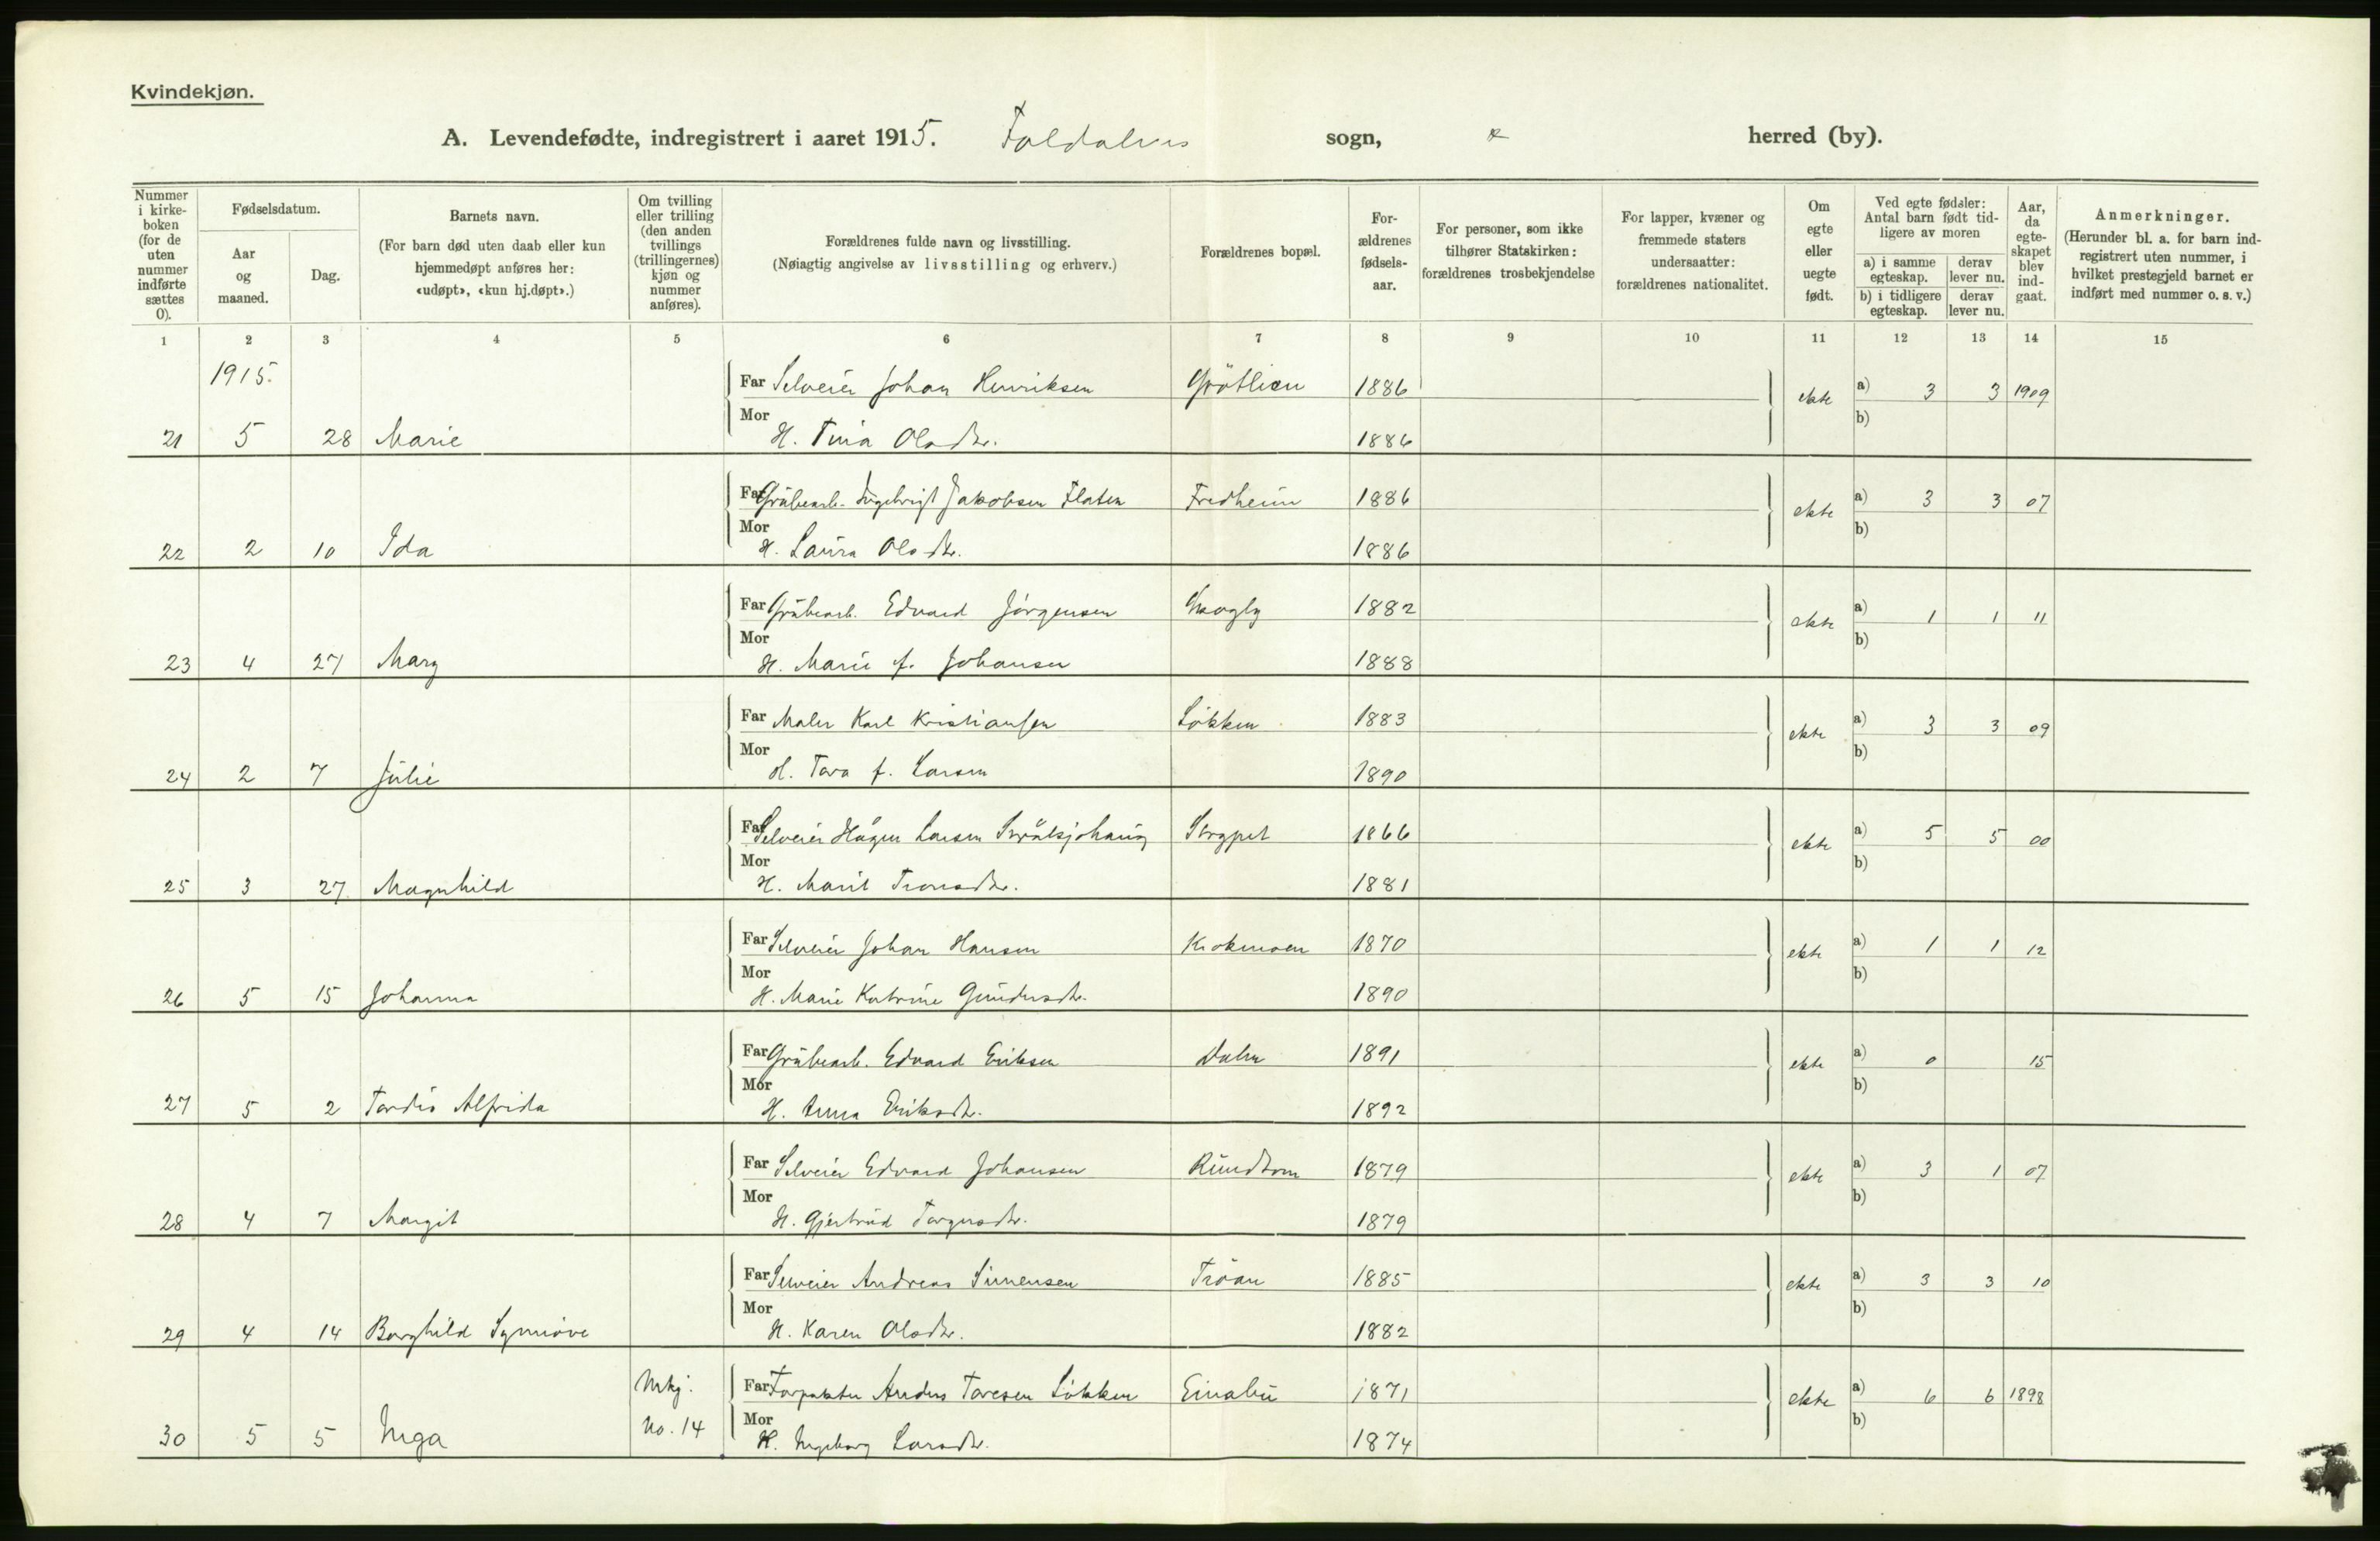 Kvindekjøn.
A. Levendefødte, indregistrert i aaret 1915. Foldalens sogn, herred (by).
Nummer i kirkeboken (for de uten nummer indførte sættes 0).
Fødselsdatum.
Aar og maaned.
Dag.
Barnets navn.
(For barn død uten daab eller kun hjemmedøpt anføres her: «udøpt», «kun hj.døpt».)
Om tvilling eller trilling (den anden tvillings (trillingernes) kjøn og nummer anføres).
Forældrenes fulde navn og livsstilling.
(Nøiagtig angivelse av livsstilling og erhverv.)
Forældrenes bopæl.
Forældrenes fødselsaar.
For personer, som ikke tilhører Statskirken: forældrenes trosbekjendelse
For lapper, kvæner og fremmede staters undersaatter: forældrenes nationalitet.
Om egte eller uegte født.
Ved egte fødsler: Antal barn født tidligere av moren
a) i samme egteskap. derav lever nu.
b) i tidligere egteskap. derav lever nu.
Aar, da egteskapet blev indgaat.
Anmerkninger.
(Herunder bl. a. for barn indregistrert uten nummer, i hvilket prestegjeld barnet er indført med nummer o. s. v.)
1 2 3 4 5 6 7 8 9 10 11 12 13 14 15
1915.
Far Selveier Johan Henriksen Grötlien 1886 ekte a) 3 3 1909
Mor b)
21 5 28 Marie H. Tina Olsdtr. 1886
Far Grübearb. Ingebrigt Jakobsen Flaten Fredheim 1886 ekte a) 3 3 07
Mor b)
22 2 10 Ida H. Laura Olsdtr. 1886
Far Grübearb. Edvard Jörgensen Skogly 1882 ekte a) 1 1 11
Mor b)
23 4 27 Mary H. Marie f. Johansen 1888
Far Maler Karl Kristiansen Lökken 1883 ekte a) 3 3 09
Mor b)
24 2 7 Julie H. Tora f. Larsen 1890
Far Selveier Hågen Larsen Streppet 1866 ekte a) 5 5 00
Mor b)
25 3 27 Magnhild H. Marit Tronsdtr. 1881
Far Selveier Johan Hansen Krokmoen 1870 ekte a) 1 1 12
Mor b)
26 5 15 Johanna H. Marie Katrine Gundersdtr. 1890
Far Grübearb. Edvard Eriksen Dalen 1891 ekte a) 0 15
Mor b)
27 5 2 Tordis Alfrida H. Anna Eriksdtr. 1892
Far Selveier Edvard Johansen Rundtom 1879 ekte a) 3 1 07
Mor b)
28 4 7 Margit H. Gjertrud Torgersdtr. 1879
Far Selveier Andreas Simensen Tröan 1885 ekte a) 3 3 10
Mor b)
29 4 14 Borghild Synnöve H. Karen Olsdtr. 1882
Mkj. Far Forpakter Anders Toresen Lökken Einabu 1871 ekte a) 6 6 1898
No. 14 Mor b)
30 5 5 Inga H. Ingeborg Larsdtr. 1874